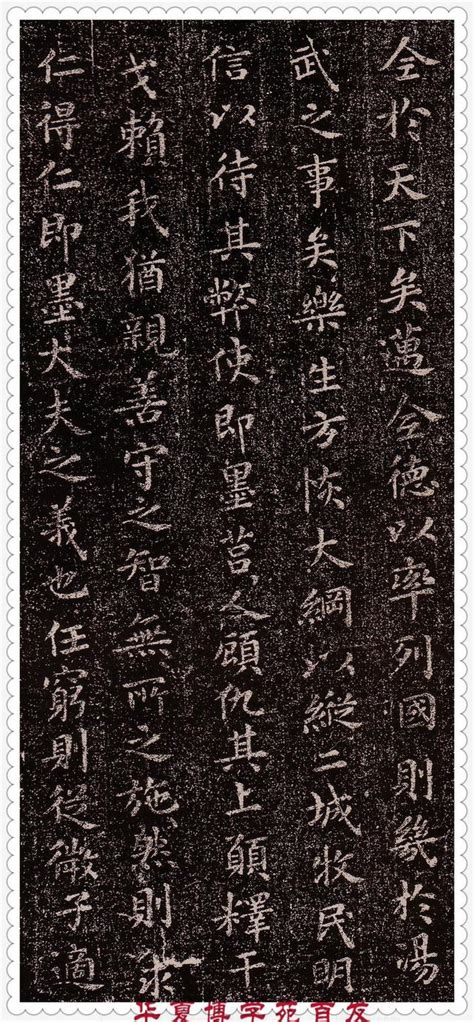 令於天下矣邁令德以率列國則幾於湯
武之事矣樂生方恢大綱以縱二城牧民明
信以待其弊使即墨莒人顧仇其上願釋干
戈賴我猶親善守之智無所之施然則求
仁得仁即墨大夫之義也任窮則從微子適
华夏博学苑百友